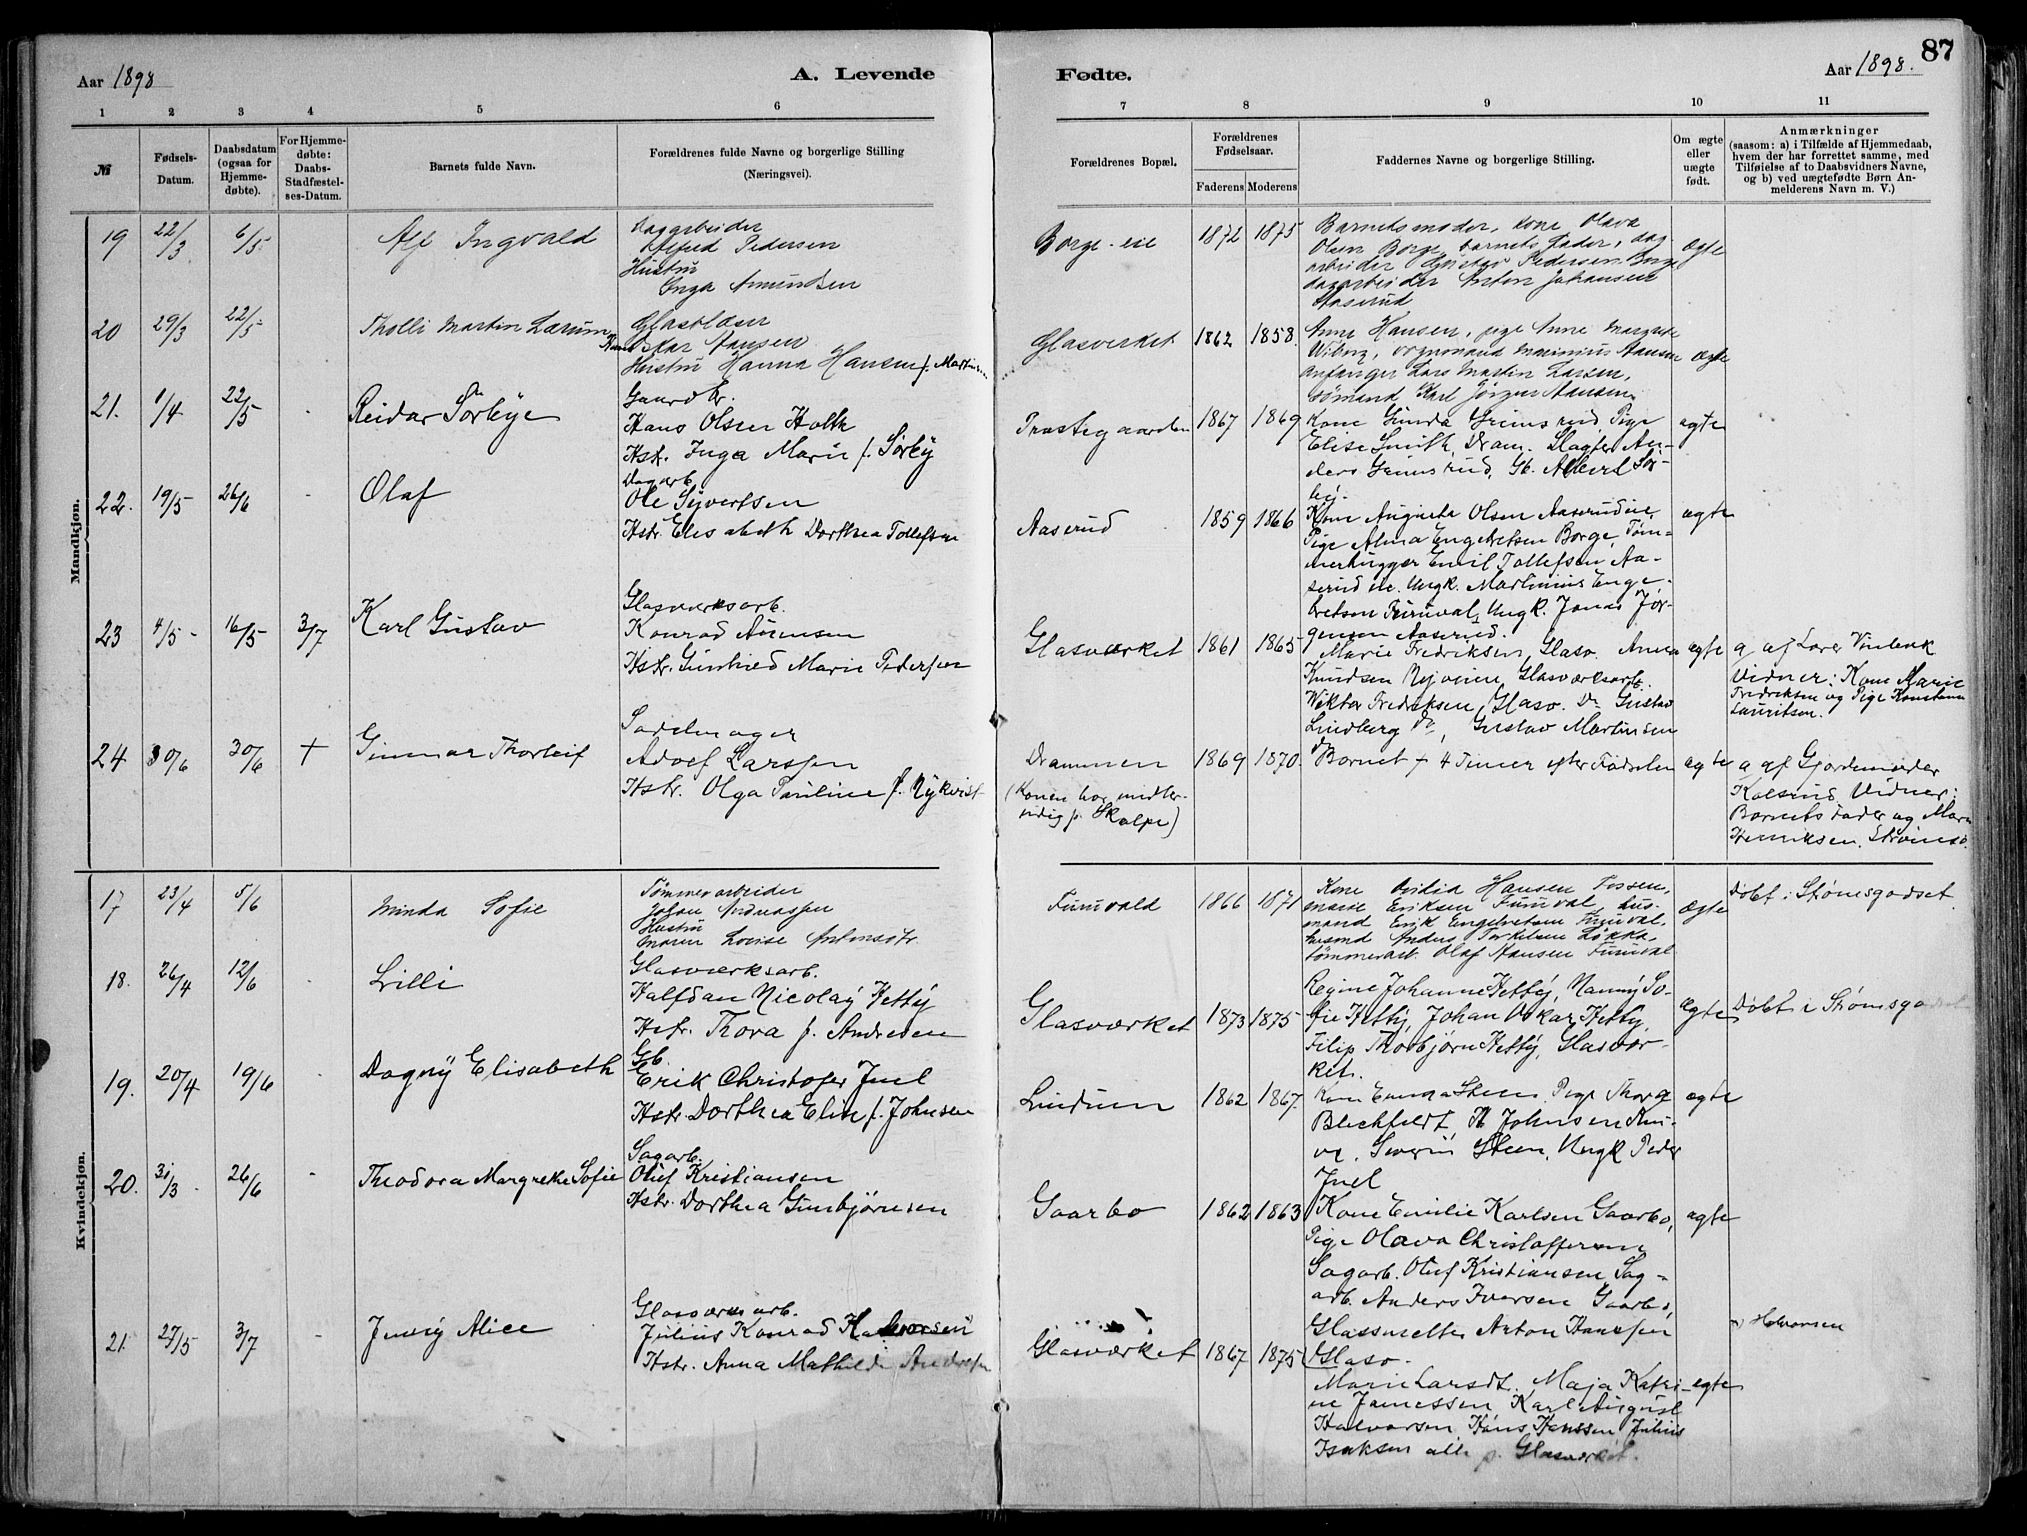 87
Aar 1898
A. Levende
Fødte.
Aar 1898.
1 2 3 4 5 6 7 8 9 10 11
№
Fødsels-
Datum.
Daabsdatum
(ogsaa for
Hjemme-
døbte).
For Hjemme-
døbte:
Daabs-
Stadfæstel-
ses-Datum.
Barnets fulde Navn.
Forældrenes fulde Navne og borgerlige Stilling
(Næringsvei).
Forældrenes Bopæl.
Forældrenes
Fødselsaar.
Faderens Moderens
Faddernes Navne og borgerlige Stilling.
Om ægte
eller
uægte
født.
Anmærkninger
(saasom: a) i Tilfælde af Hjemmedaab,
hvem der har forrettet samme, med
Tilføielse af to Daabsvidners Navne,
og b) ved uægtefødte Børn An-
melderens Navn m. V.)
Mandkjøn.
19 22/3 6/5 Alf Ingvald
Dagarbeider
Alfred Pedersen
Hustru
Inga Amundsen
Borge-eie 1872 1875
Barnets moder, kone Olava
Olsen Borge, barnets fader, dag-
arbeider Gustav Pedersen Borge
dagarbeider Anton Johansen
Aaserud
ægte
20 29/3 22/5 Tholli Martin Larum
Glasblæser
Oskar Hansen
Hustru Hanna Hansen f. Martins
Glasverket 1862 1858.
Anne Hansen, pige Anne Margrete
Wiborg, vognmand Marinius Hansen
Anfanger Lars Martin Larsen,
sømand Karl Jörgen Hansen
ægte
21. 1/4 22/5 - Reidar Sørbye
Gaardbr.
Hans Olsen Holth
Hstr. Inga Marie f. Sørby
Præstegaarden 1867 1869
Kone Gunda Grimsrud, Pige
Elise Smith, Dram. Slagter An-
ders Grimsrud, Gb. Alberd Sør-
bÿ.
ægte
22. 19/5 26/6 - Olaf
Dagarb.
Ole Syvertsen
Hstr. Elisabeth Dorthea Tollefsen
Aaserud 1859 1866
Kone Augusta Olsen Aaserudeie,
Pige Alma Engebretsen Borge, Tøm-
merhugger Emil Tollefsen Aa-
serud eie. Ungk. Martinius Enge-
bretsen Furuval, Ungk. Jonas Jør-
gensen Aaserud.
ægte
23 4/5 - 16/5 3/7 Karl Gustav
Glasværksarb.
Konrad Aurensen
Hstr. Gunhild Marie Pedersen
Glasværket 1861 1865
Marie Fredriksen, Glasv. Anna
Knudsen Nyveien, Glasværksarb.
Wiktor Fredriksen, Glasv. Do Gustav
Lindberg Do, Gustav Martinsen
Do
ægte
g. af Lærer Vinbæk
Vidner: Kone Marie
Fredriksen og Pige Konstanse
Lauritsen.
24 30/6 30/6 + Gunnar Thorleif
Sadelmager
Adolf Larssen
Hstr. Olga Pauline f. Nykvist
Drammen
(Konen bor midler-
tidig p. Skalpe)
1869 1870.
Barnet + 4 Timer efter Fødselen
ægte
g. af Gjordemoder
Kolsrud. Vidner:
Barnets Fader og Maren
Henriksen, Strømsø.
Kvindekjøn.
17 23/4 5/6 Minda Sofie
Tømmerarbeider
Johan Andreassen
Hustru
Maren Lovise Antonsdtr.
Furuvald 1866 1871
Kone Ovidia Hansen Fossen,
Marie Eriksen Furuval, hus-
mand Erik Engebretsen Furuval,
husmd Anders Torkelsen Løkka,
tømmerarb. Olaf Hansen Furuval
ægte
Døbt i Strømsgodset.
18. 26/4 12/6 - Lilli
Glasværksarb.
Halfdan Nicolaÿ Hettÿ
Hstr. Thora f. Andresen
Glasværket 1873 1875
Regine Johanne Hettÿ, Nannÿ So-
fie Hettÿ, Johan Oskar Hettÿ,
Filip Thorbjørn Hettÿ, Glasvær-
ket.
ægte
Døbt i Strømsgodset
19. 20/4 19/6 - Dagnÿ Elisabeth
Gb.
Erik Christofer Juel
Hstr. Dorthea Elin f. Johnsen
Lindum 1862 1867.
Kone Emma Steen, Pige Thora
Blechfeldt, H Johnsen
Severin Steen, Ungk Peder
Juel
ægte
20. 31/3 - 26/6 - Theodora Margrethe Sofie
Sagarb.
Oluf Kristiansen
Hstr. Dorthea Gunbjørnsen
Gaarbo 1862 1863
Kone Emilie Karlsen Gaarbo,
Pige Olava Christoffersen
Sagarb. Oluf Kristiansen, Sag-
arb. Anders Iversen Gaarbo,
Glassmelter Anton Hanssen
Glasv.
ægte
21. 27/5 3/7 - Jenny Alice
Glasværksarb.
Julius Konrad Halvorsen
Hstr. Anna Mathilde Andresen
Glasværket 1867 1875
Marie Larsdt. Maja Katri-
ne Jamessen, Karl August
Halvorsen, Hans Hanssen, Julius
Isaksen alle p. Glasværket.
ægte
Halvorsen